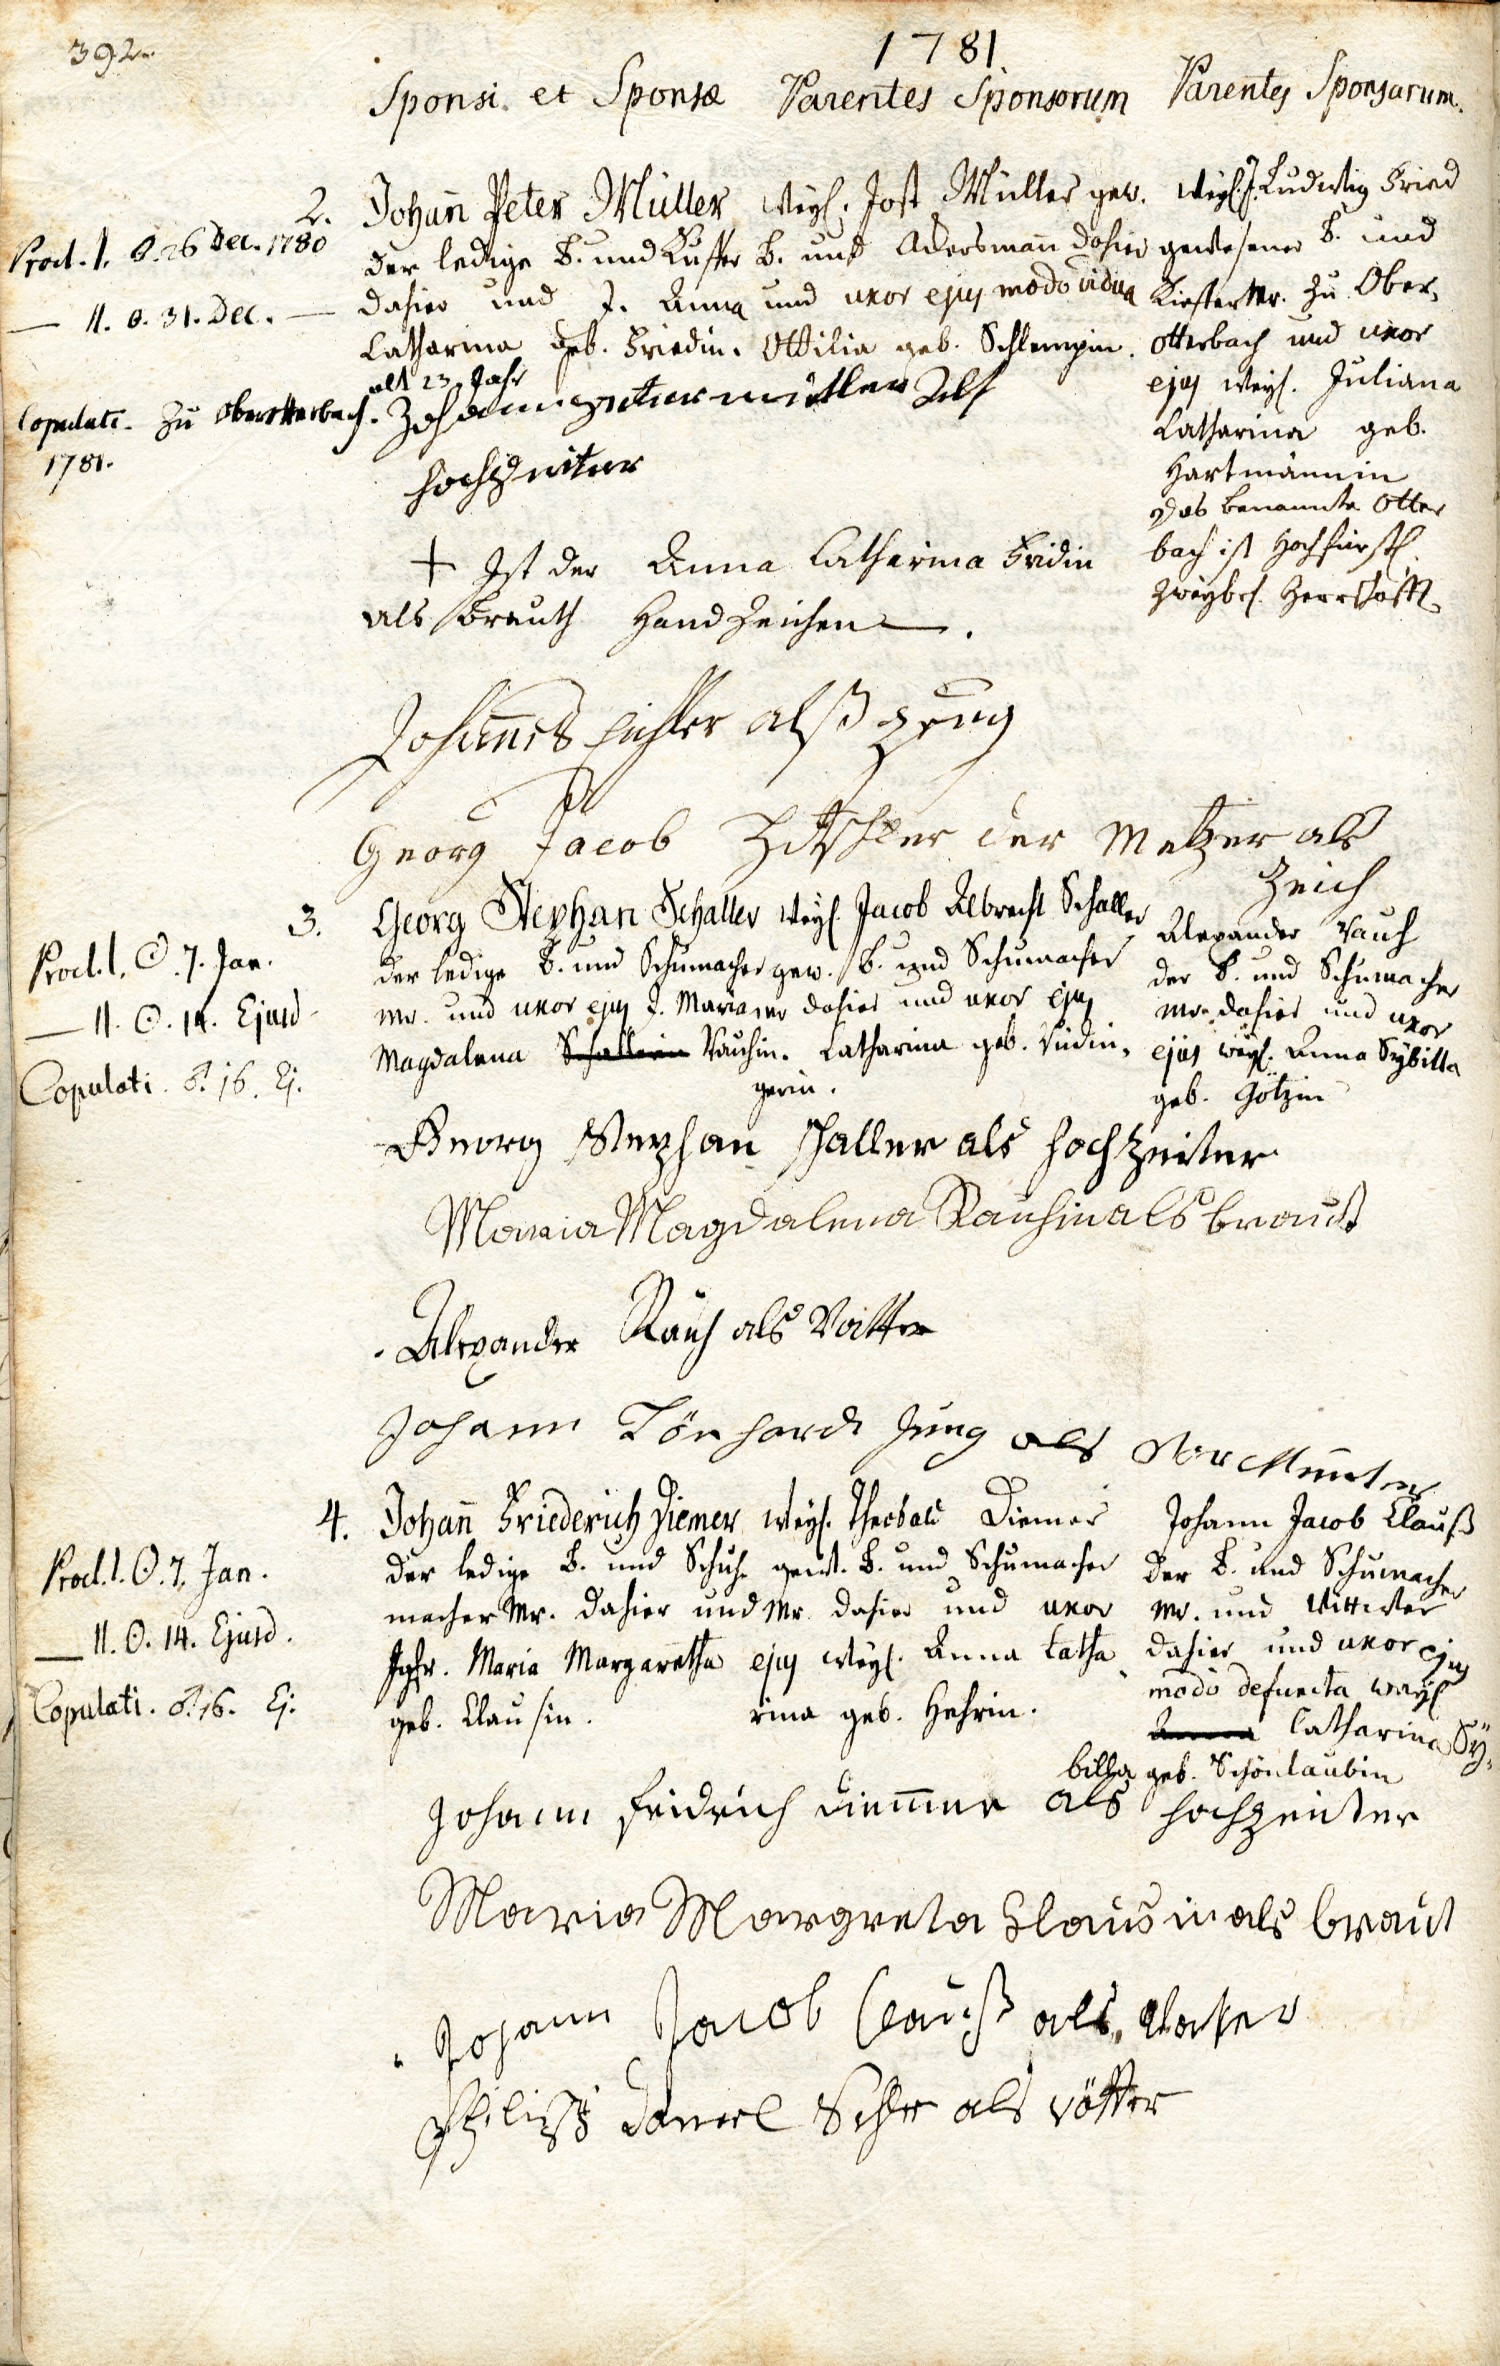 392.
1781.
Sponsi. et Sponsæ Parentes Sponsorum Parentes Sponsarum.
2.
Procl. I. d. 26 Dec. 1780
— II. d. 31. Dec. —
Copulati. zu Oberotterbach.
1781.
Johañ Peter Müller
der ledige B. und Küffer
dahier und J. Anna
Catharina geb. Friedin.
alt 23 Jahr
Weyl. Jost Müller gew.
B. und Ackersmañ dahier
und uxor ejus modo vidua
Ottilia geb. Schlempin.
Weyl. J. Ludwig Fried
gewesener B. und
Kiefer Mr. zu Ober,
otterbach und uxor
ejus Weyl. Juliana
Catharina geb.
Hartmännin
das benannte Otter
bach ist Hochfürstl.
Zweybr. Herrschafft.
Johann peter müller als
hochzeiter
+ Ist der Anna Catharina Fridin
als Brauth Handzeichen.
Johannes als Zeug
Georg Jacob der Metzer als
Zeich
3.
Procl. I. ☉. 7. Jan.
— II. ☉. 14. Ejusd.
Copulati. ♂. 16. Ej.
Georg Stephan Schaller
der ledige B. und Schumacher
Mr. und J. Maria
Magdalena Schallerin Rauchin.
Weyl. Jacob Albrecht Schaller
gew. B. und Schumacher
Mr dahier und uxor ejus
Catharina geb. Rüdin,
gerin.
Alexander Rauch
der B. und Schumacher
Mr. dahier und uxor
ejus weyl. Anna Sybilla
geb. Götzin
Georg Stephan schaller als hochzeiter
Maria Magdalena Rauhin als braut
Alexander Rauh als Vatter
Johann Lönhard Jung als
4.
Procl. I. ☉. 7. Jan.
— II. ☉. 14. Ejusd.
Copulati. ♂. 16. Ej.
Johañ Friederich Diemer
der ledige B. und Schuh,
macher Mr. dahier und
Jgfr. Maria Margaretha
geb. Clausin.
Weyl. Theobald Diemer
gewes. B. und Schumacher
Mr dahier und uxor
ejus Weyl. Anna Catha
rina geb. Hehrin.
Johann Jacob Clauß
der B. und Schumacher
Mr. und Wittwer
dahier und uxor ejus
modo defuncta weyl
Anna Catharina Sÿ,
billa geb. Schönlaubin
Johann fridrich diemmer als hochzeiter
Maria Margreta Klausin als braut
Johann Jacob Clauß als Vater
Philipp Daniel als vötter